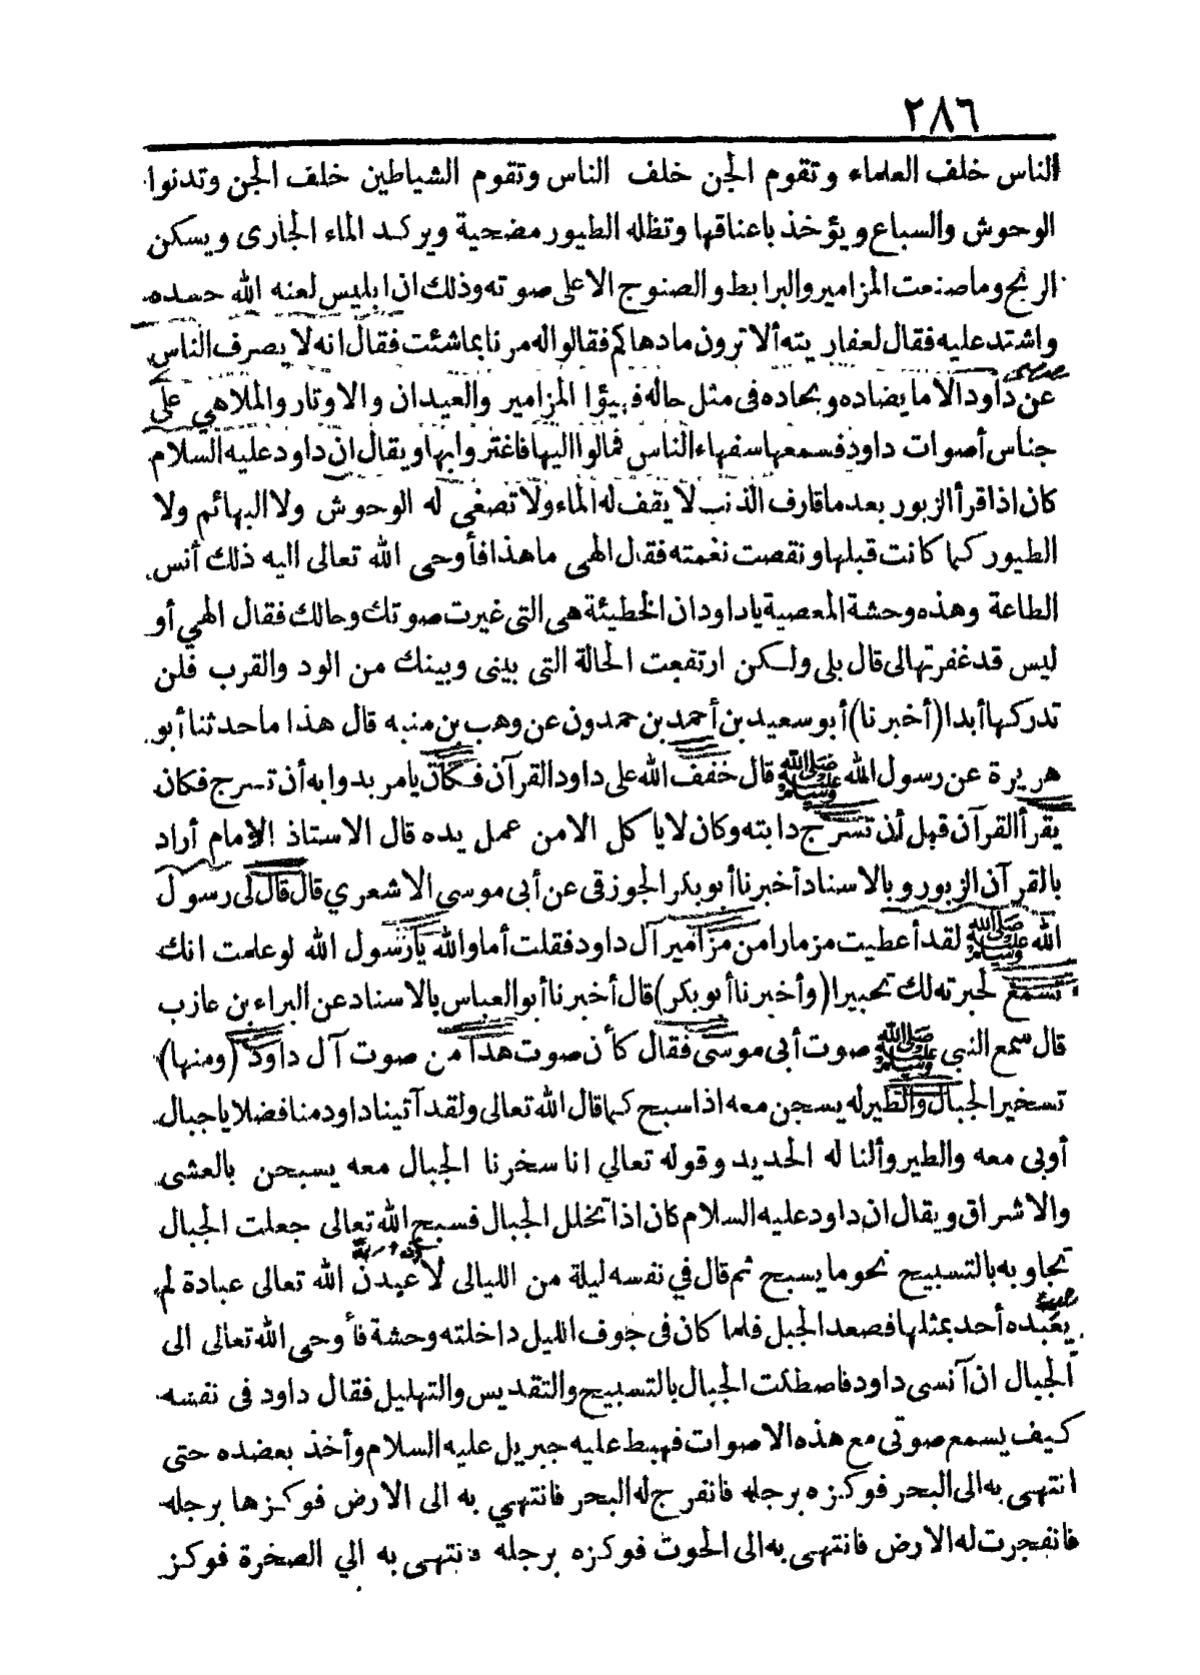 ٢٨٦
الناس خلف العلماء وتقوم الجن خلف الناس وتقوم الشياطين خلف الجن وتدنوا
الوحوش والسباع ويؤخذ باعناقها وتظله الطيور مضحية ويركد الماء الجارى ويسكن
الريح وما صنعت المزامير والبرابط والصنوج الا على صوته وذلك ان ابليس لعنه الله حسده
واشتد عليه فقال لعفاريته ألا ترون ما دهاكم فقالوا له مرنا بما شئت فقال انه لا يصرف الناس
عن داود الا ما يضاده ويحاده فى مثل حاله فهيؤا المزامير والعيدان والاوتار والملاهي على
جناس أصوات داود فسمعها سفهاء الناس فمالوا اليها فاغتروا بها ويقال ان داود عليه السلام
كان اذا قرأ الزبور بعد ما قارف الذنب لا يقف له الماء ولا تصغى له الوحوش ولا البهائم ولا
الطيور كما كانت قبلها ونقصت نغمته فقال الهى ما هذا فأوحى الله تعالى اليه ذلك أنس
الطاعة وهذه وحشة المعصية يا داود ان الخطيئة هى التى غيرت صوتك وحالك فقال الهي أو
ليس قد غفرتها لى قال بلى ولكن ارتفعت الحالة التى بينى وبينك من الود والقرب فلن
تدركها أبدا (أخبرنا) أبو سعيد بن أحمد بن حمدون عن وهب بن منبه قال هذا ما حدثنا أبو
هريرة عن رسول الله ﷺ قال خفف الله على داود القرآن فكان يامر بدوابه أن تسرج فكان
يقرأ القرآن قبل أن تسرج دابته وكان لا يا كل الا من عمل يده قال الاستاذ الامام أراد
بالقرآن الزبور وبالاسناد أخبرنا أبو بكر الجوزقى عن أبى موسى الاشعري قال قال لى رسول
الله ﷺ لقد أعطيت مزمارا من مزامير آل داود فقلت أما والله يا رسول الله لو علمت انك
تسمع لحبرته لك تحبيرا (وأخبرنا أبو بكر) قال أخبرنا أبو العباس بالاسناد عن البراء بن عازب
قال سمع النبي ﷺ صوت أبى موسى فقال كأن صوت هذا من صوت آل داود (ومنها)
تسخير الجبال والطير له يسبحن معه اذا سبح كما قال الله تعالى ولقد آتينا داود منا فضلا يا جبال
أوبى معه والطير وألنا له الحديد وقوله تعالي انا سخرنا الجبال معه يسبحن بالعشى
والاشراق ويقال ان داود عليه السلام كان اذا تخلل الجبال فسبح الله تعالى جعلت الجبال
تجاوبه بالتسبيح نحو ما يسبح ثم قال في نفسه ليلة من الليالى لأعبدن الله تعالى عبادة لم
يعبده أحد بمثلها فصعد الجبل فلما كان فى جوف الليل داخلته وحشة فأوحى الله تعالى الى
الجبال ان آنسى داود فاصطكت الجبال بالتسبيح والتقديس والتهليل فقال داود فى نفسه
كيف يسمع صوتى مع هذه الاصوات فهبط عليه جبريل عليه السلام وأخذ بعضده حتى
انتهى به الى البحر فوكزه برجله فانفرج له البحر فانتهي به الى الارض فوكزها برجله
فانفجرت له الارض فانتهى به الى الحوت فوكزه برجله فانتهى به الي الصخرة فوكز